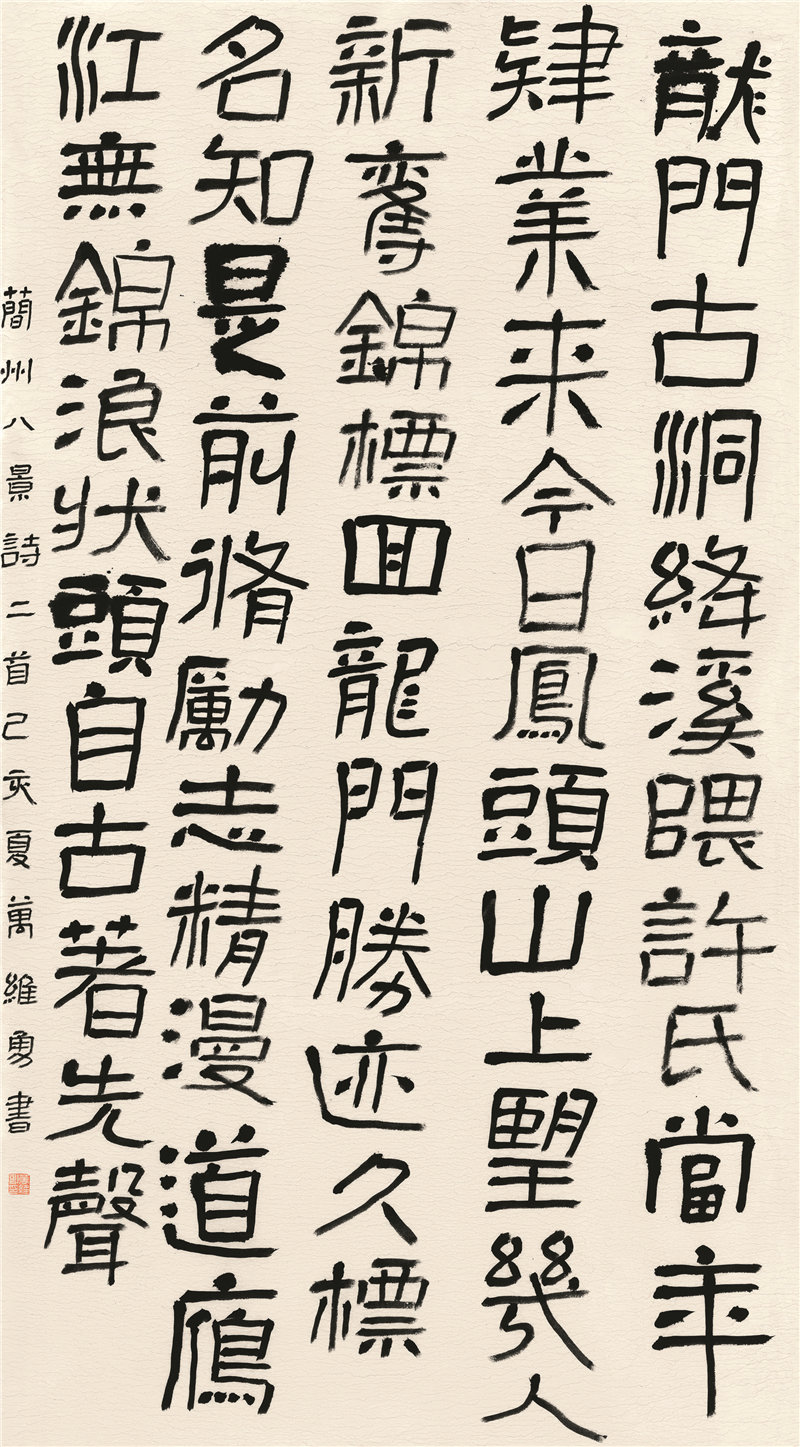 龍門古洞絳溪隈許氏當年
肄業来今日鳳頭山上望幾人
新奪錦標囬龍門勝迹久標
名知是前脩勵志精漫道鴈
江無錦浪状頭自古著先聲
簡州八景詩二首己亥夏萬維勇書